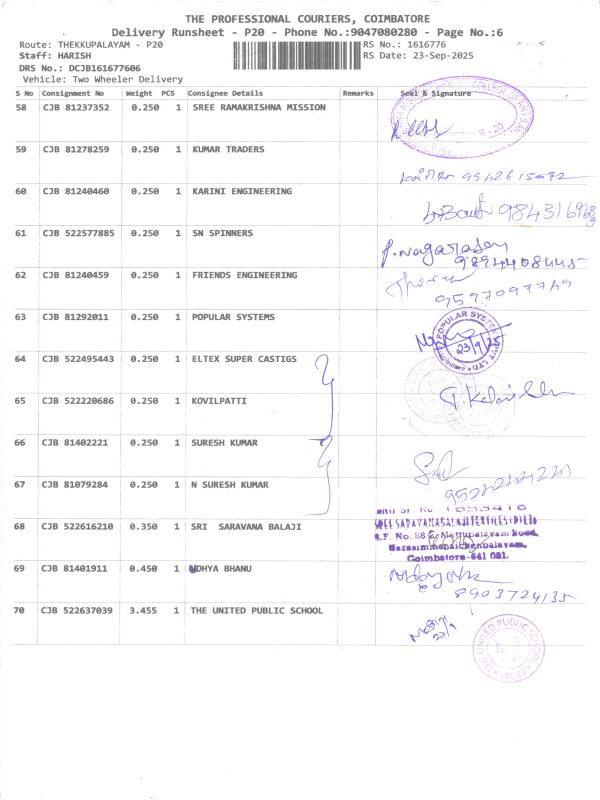 THE PROFESSIONAL COURIERS, COIMBATORE
Delivery Runsheet - P20 - Phone No.:9047080280 - Page No.:6
Route: THEKKUPALAYAM - P20 RS No.: 1616776
Staff: HARISH RS Date: 23-Sep-2025
DRS No.: DCJB161677606
Vehicle: Two Wheeler Delivery
S No Consignment No Weight PCS Consignee Details Remarks Seal & Signature
58 CJB 81237352 0.250 1 SREE RAMAKRISHNA MISSION
59 CJB 81278259 0.250 1 KUMAR TRADERS
9942615072
60 CJB 81240460 0.250 1 KARINI ENGINEERING
61 CJB 522577885 0.250 1 SN SPINNERS
P. nagarasan
62 CJB 81240459 0.250 1 FRIENDS ENGINEERING
9597097749
63 CJB 81292011 0.250 1 POPULAR SYSTEMS
POPULAR SYSTEMS PVT LTD
23/9/25
64 CJB 522495443 0.250 1 ELTEX SUPER CASTIGS
65 CJB 522220686 0.250 1 KOVILPATTI
66 CJB 81402221 0.250 1 SURESH KUMAR
67 CJB 81079284 0.250 1 N SURESH KUMAR
68 CJB 522616210 0.350 1 SRI SARAVANA BALAJI
Coimbatore-641 031.
69 CJB 81401911 0.450 1 UDHYA BHANU
8903724135
70 CJB 522637039 3.455 1 THE UNITED PUBLIC SCHOOL
THE UNITED PUBLIC SCHOOL